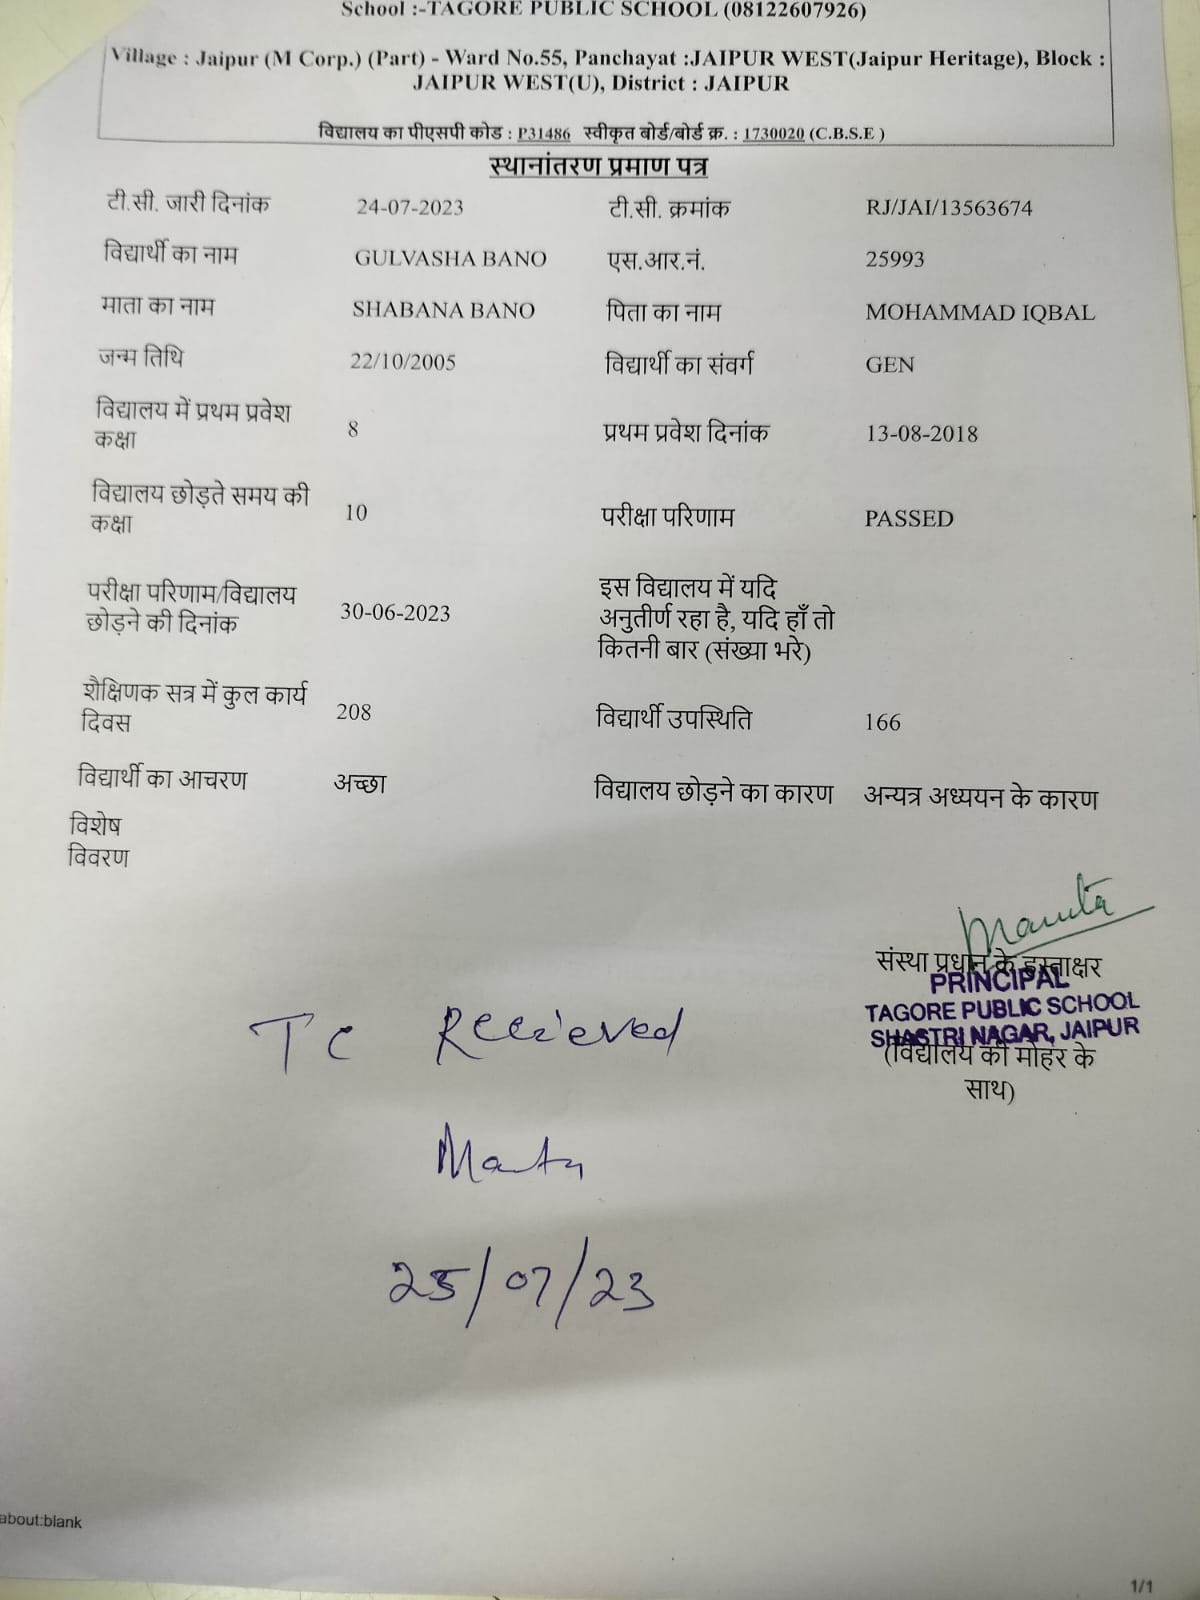 School :-TAGORE PUBLIC SCHOOL (08122607926)
Village : Jaipur (M Corp.) (Part) - Ward No.55, Panchayat :JAIPUR WEST(Jaipur Heritage), Block :
JAIPUR WEST(U), District : JAIPUR
विद्यालय का पीएसपी कोड : P31486 स्वीकृत बोर्ड/बोर्ड क्र. : 1730020 (C.B.S.E )
स्थानांतरण प्रमाण पत्र
टी.सी. जारी दिनांक 24-07-2023 टी.सी. क्रमांक RJ/JAI/13563674
विद्यार्थी का नाम GULVASHA BANO एस.आर.नं. 25993
माता का नाम SHABANA BANO पिता का नाम MOHAMMAD IQBAL
जन्म तिथि 22/10/2005 विद्यार्थी का संवर्ग GEN
विद्यालय में प्रथम प्रवेश
कक्षा 8 प्रथम प्रवेश दिनांक 13-08-2018
विद्यालय छोड़ते समय की
कक्षा 10 परीक्षा परिणाम PASSED
परीक्षा परिणाम/विद्यालय
छोड़ने की दिनांक 30-06-2023
इस विद्यालय में यदि
अनुतीर्ण रहा है, यदि हाँ तो
कितनी बार (संख्या भरे)
शैक्षिणक सत्र में कुल कार्य
दिवस 208 विद्यार्थी उपस्थिति 166
विद्यार्थी का आचरण अच्छा विद्यालय छोड़ने का कारण अन्यत्र अध्ययन के कारण
विशेष
विवरण
Mamta
संस्था प्रधान के हस्ताक्षर
PRINCIPAL
TAGORE PUBLIC SCHOOL
SHASTRI NAGAR, JAIPUR
(विद्यालय की मोहर के
साथ)
TC Recieved
25/07/23
about:blank
1/1